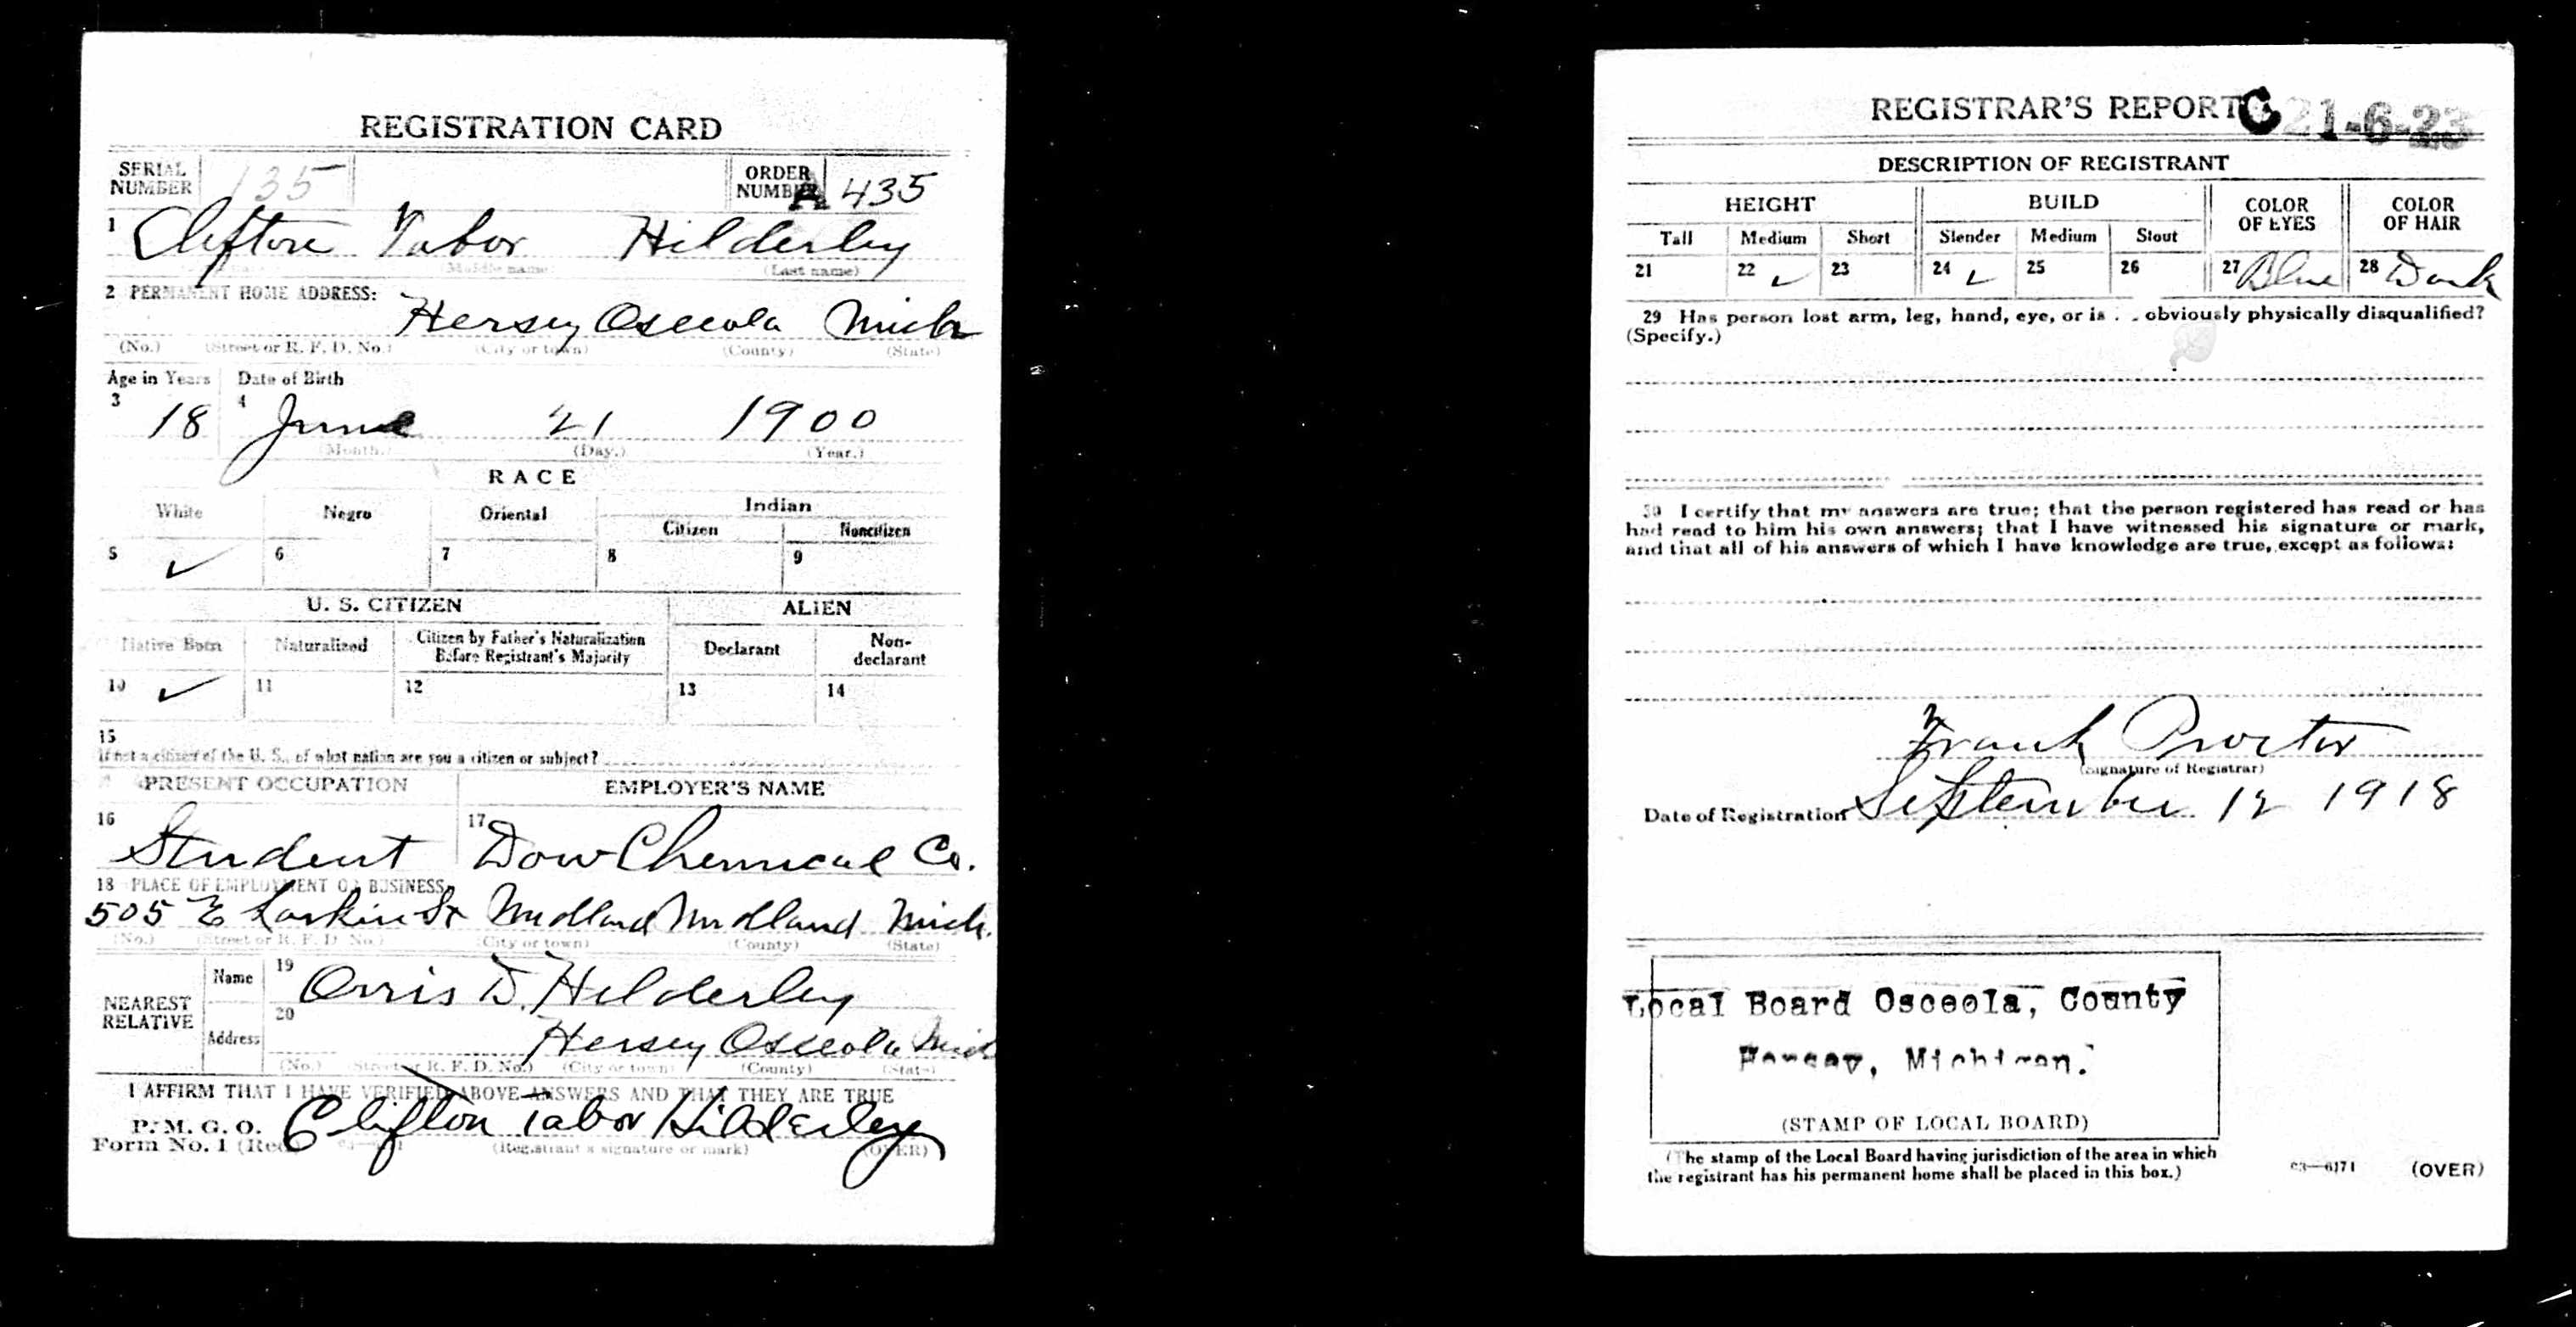 REGISTRATION CARD
SERIAL NUMBER 135 ORDER NUMBER A 435
1 Clifton Tabor Hilderley
(Middle name) (Last name)
2 PERMANENT HOME ADDRESS:
Hersey Osceola Mich
(No.) (Street or R. F. D. No.) (City or town) (County) (State)
Age in Years Date of Birth
3 18 4 June 21 1900
(Month.) (Day.) (Year.)
RACE
White Negro Oriental Indian
Citizen Noncitizen
5 ✓ 6 7 8 9
U. S. CITIZEN ALIEN
Native Born Naturalized Citizen by Father's Naturalization Before Registrant's Majority Declarant Non-declarant
10 ✓ 11 12 13 14
15
If not a citizen of the U. S., of what nation are you a citizen or subject?
PRESENT OCCUPATION EMPLOYER'S NAME
16 Student 17 Dow Chemical Co.
18 PLACE OF EMPLOYMENT OR BUSINESS:
505 E Larkin St Midland Midland Mich.
(No.) (Street or R. F. D. No.) (City or town) (County) (State)
NEAREST RELATIVE
Name 19 Orris D. Hilderley
Address 20 Hersey Osceola Mich
(No.) (Street or R. F. D. No.) (City or town) (County) (State)
I AFFIRM THAT I HAVE VERIFIED ABOVE ANSWERS AND THAT THEY ARE TRUE
P. M. G. O.
Form No. 1 (Red) Clifton Tabor Hilderley
(Registrant's signature or mark) (OVER)
REGISTRAR'S REPORT C 21-6-23
DESCRIPTION OF REGISTRANT
HEIGHT BUILD COLOR OF EYES COLOR OF HAIR
Tall Medium Short Slender Medium Stout
21 22 ✓ 23 24 ✓ 25 26 27 Blue 28 Dark
29 Has person lost arm, leg, hand, eye, or is obviously physically disqualified?
(Specify.)
30 I certify that my answers are true; that the person registered has read or has
had read to him his own answers; that I have witnessed his signature or mark,
and that all of his answers of which I have knowledge are true, except as follows:
Frank Proctor
(Signature of Registrar)
Date of Registration September 12 1918
Local Board Osceola, County
Hersey, Michigan.
(STAMP OF LOCAL BOARD)
(The stamp of the Local Board having jurisdiction of the area in which
the registrant has his permanent home shall be placed in this box.)
03—6171 (OVER)